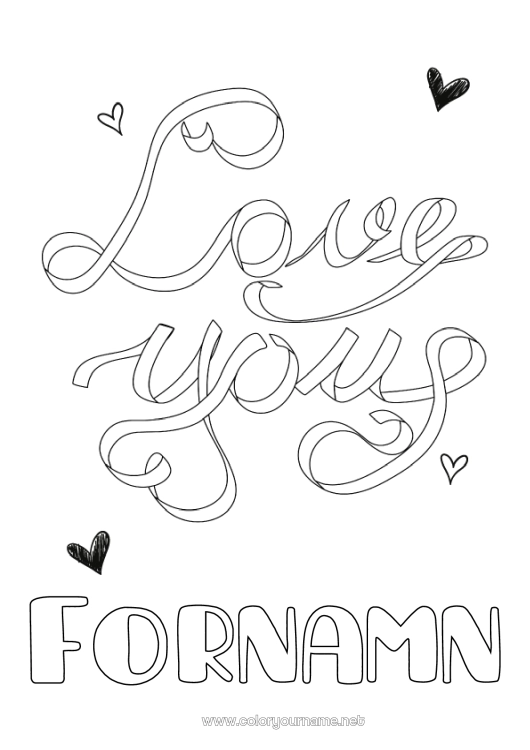 Love
you
FORNAMN
www.coloryourname.net